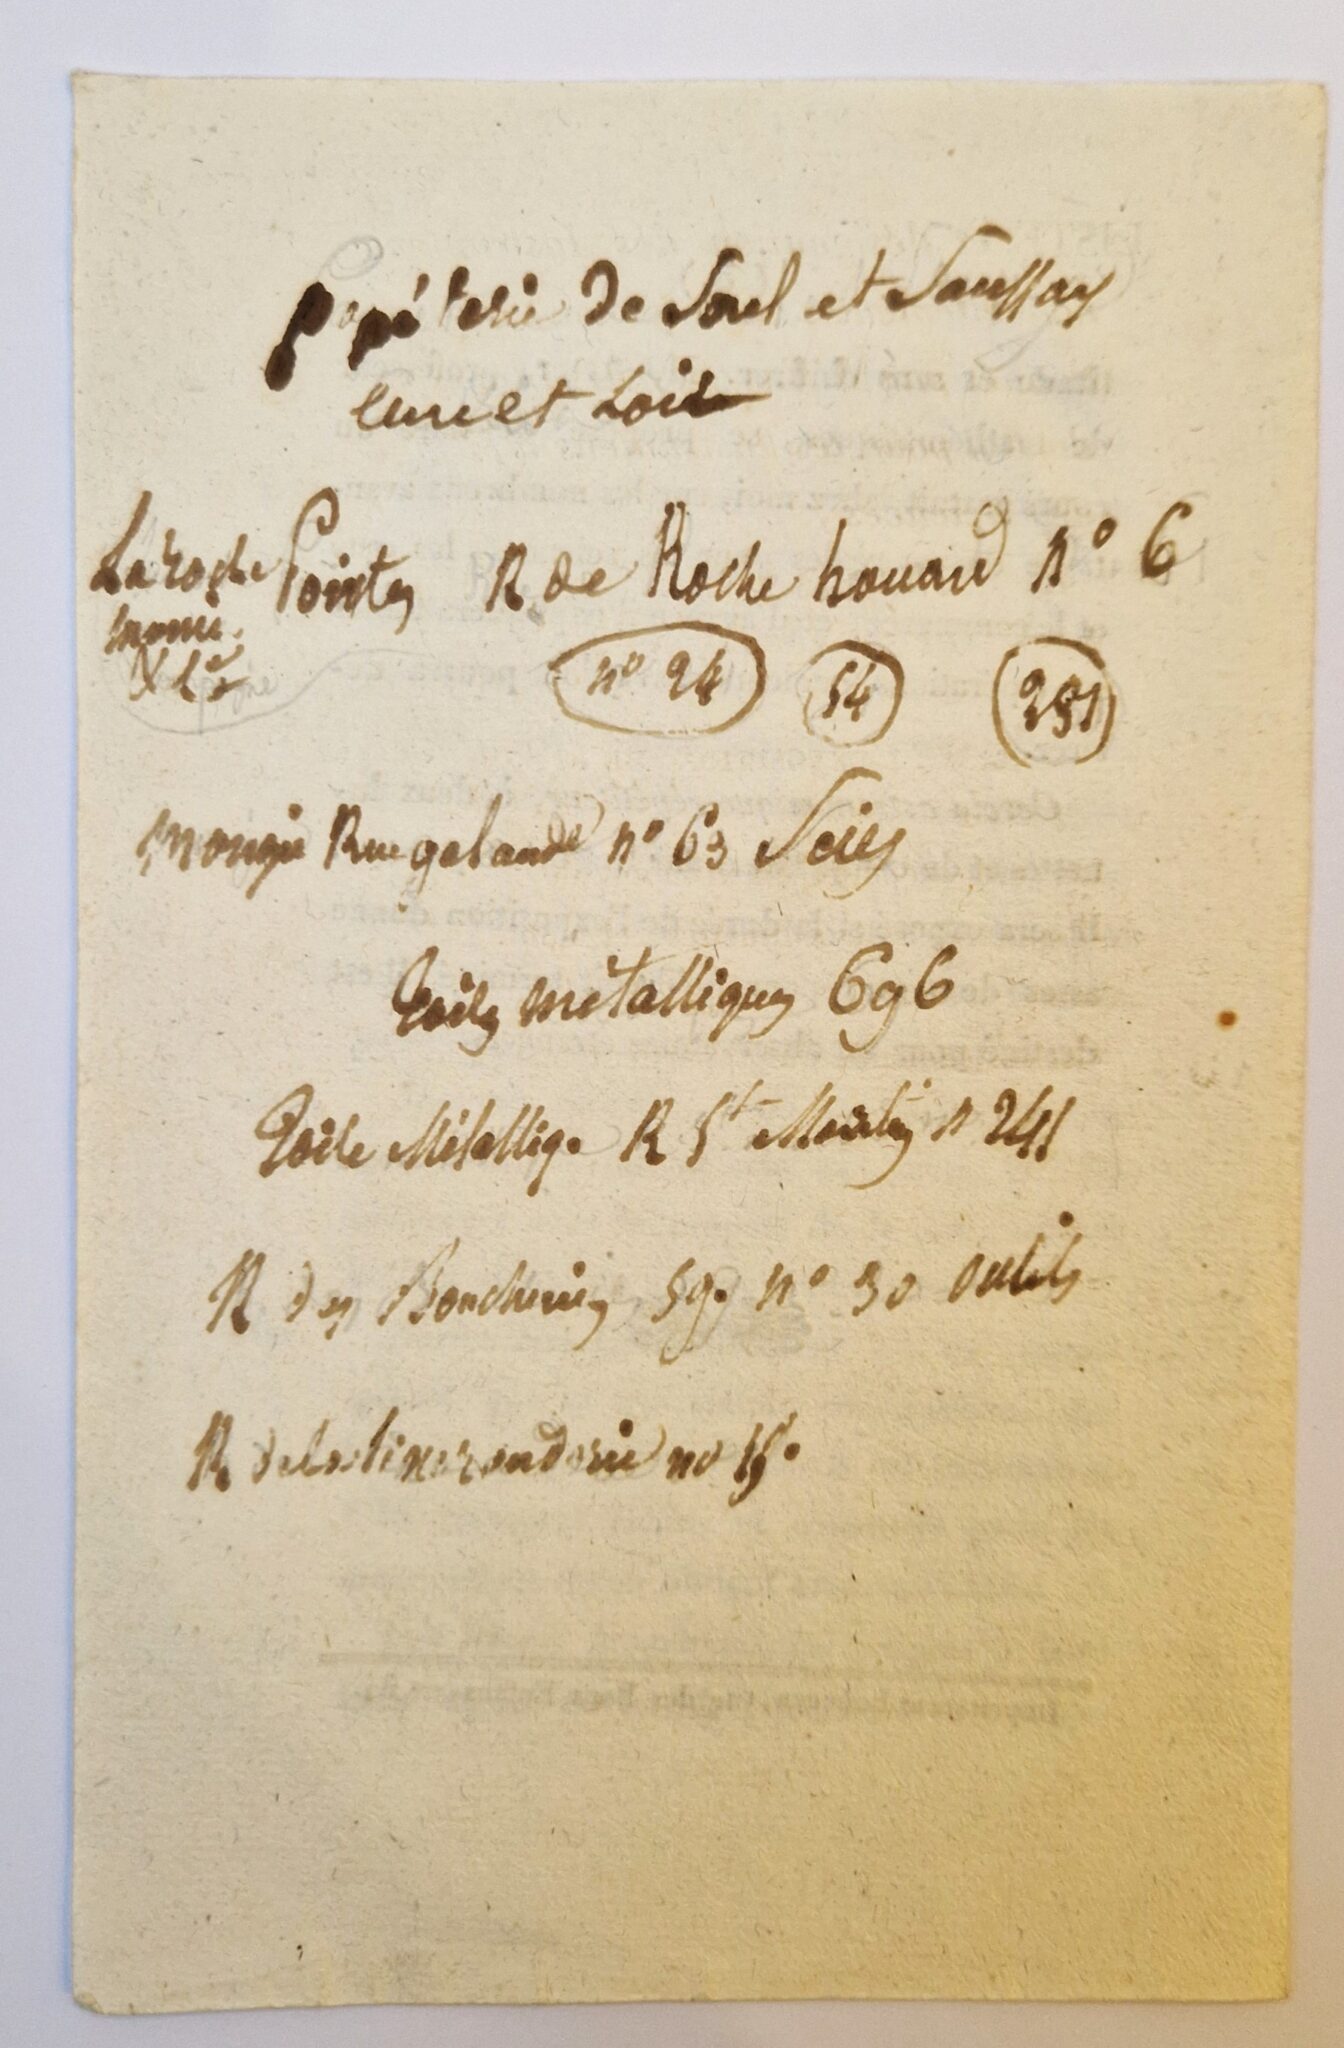 papéterie de Sorel et Saussay
eure et Loir
Laroche Pointes R de Roche houard n° 6
n° 24 54 251
mongin Rue galande n° 63 Scies
Toiles métalliques 696
Toile Métalliq. R St Martin n 241
R des Boucheries s g. n° 30 outils
R de la tixeranderie no 15.